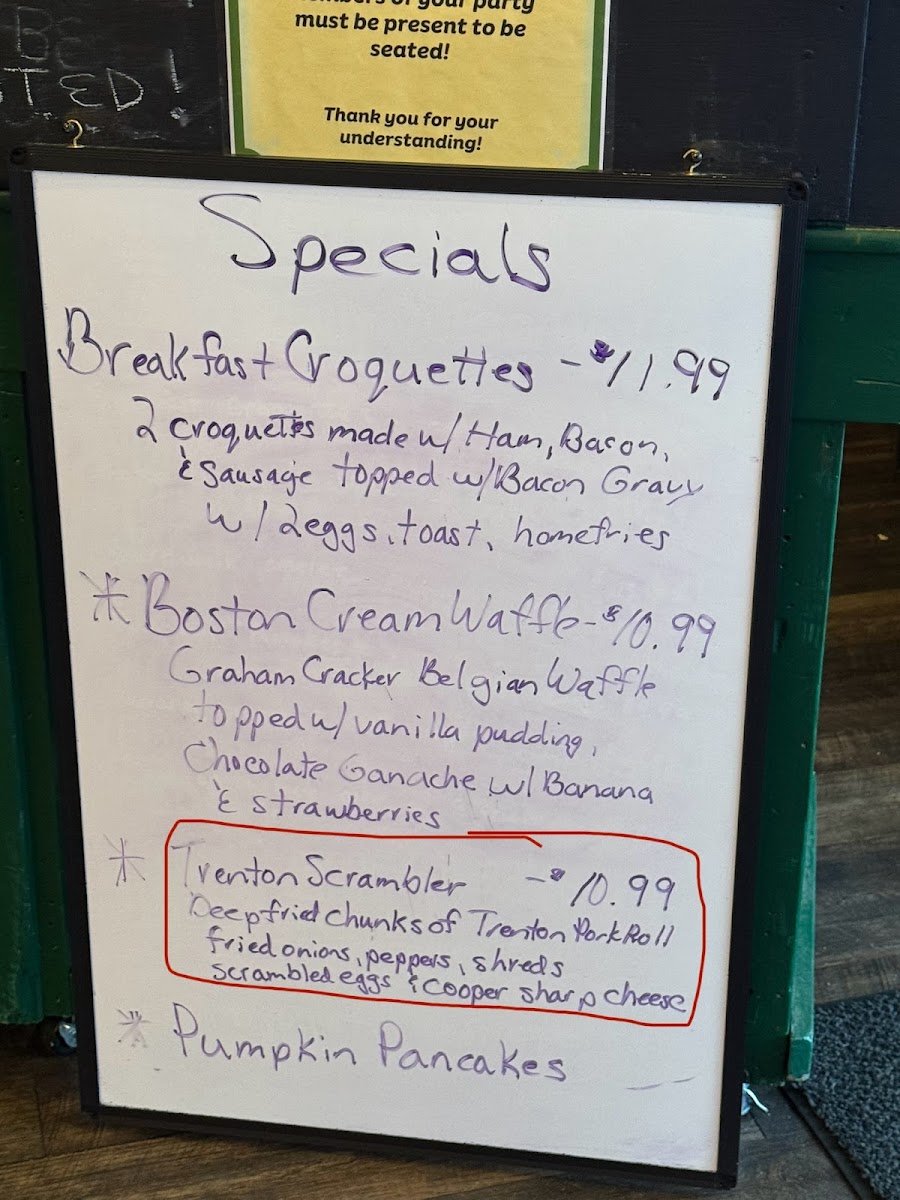 BE
TED!
members of your party
must be present to be
seated!
Thank you for your
understanding!
Specials
Breakfast Croquettes - $11.99
2 croquettes made w/ Ham, Bacon,
& Sausage topped w/ Bacon Gravy
w/ 2 eggs, toast, homefries
* Boston Cream Waffle - $10.99
Graham Cracker Belgian Waffle
topped w/ vanilla pudding,
Chocolate Ganache w/ Banana
& strawberries
* Trenton Scrambler - $10.99
Deep fried chunks of Trenton Pork Roll
fried onions, peppers, shreds
scrambled eggs & cooper sharp cheese
* Pumpkin Pancakes